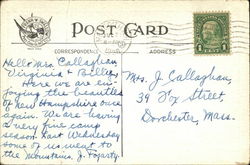 POST CARD
CORRESPONDENCE
ADDRESS
1 CENT 1
Hello Mrs. Callaghan,
Virginia & Billy,
Here we are en-
joying the beauties
of New Hampshire once
again. We are having
a very fine camp
season. Last Wednesday
some of us went to
the mountains. J. Fogarty.
Mrs. J. Callaghan,
39 Street,
Dorchester, Mass.